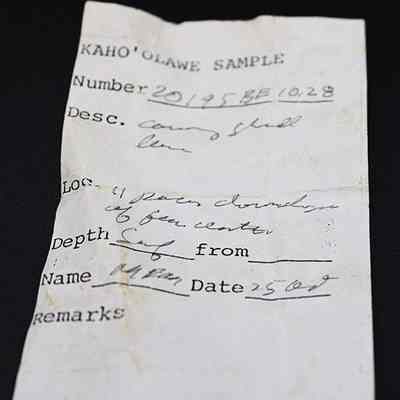 KAHO'OLAWE SAMPLE
Number 20195BE 10,28
Desc. cowry shell
Loc. 4 paces downslope
of fea center
Depth Surf from
Name Date 25 Oct
Remarks